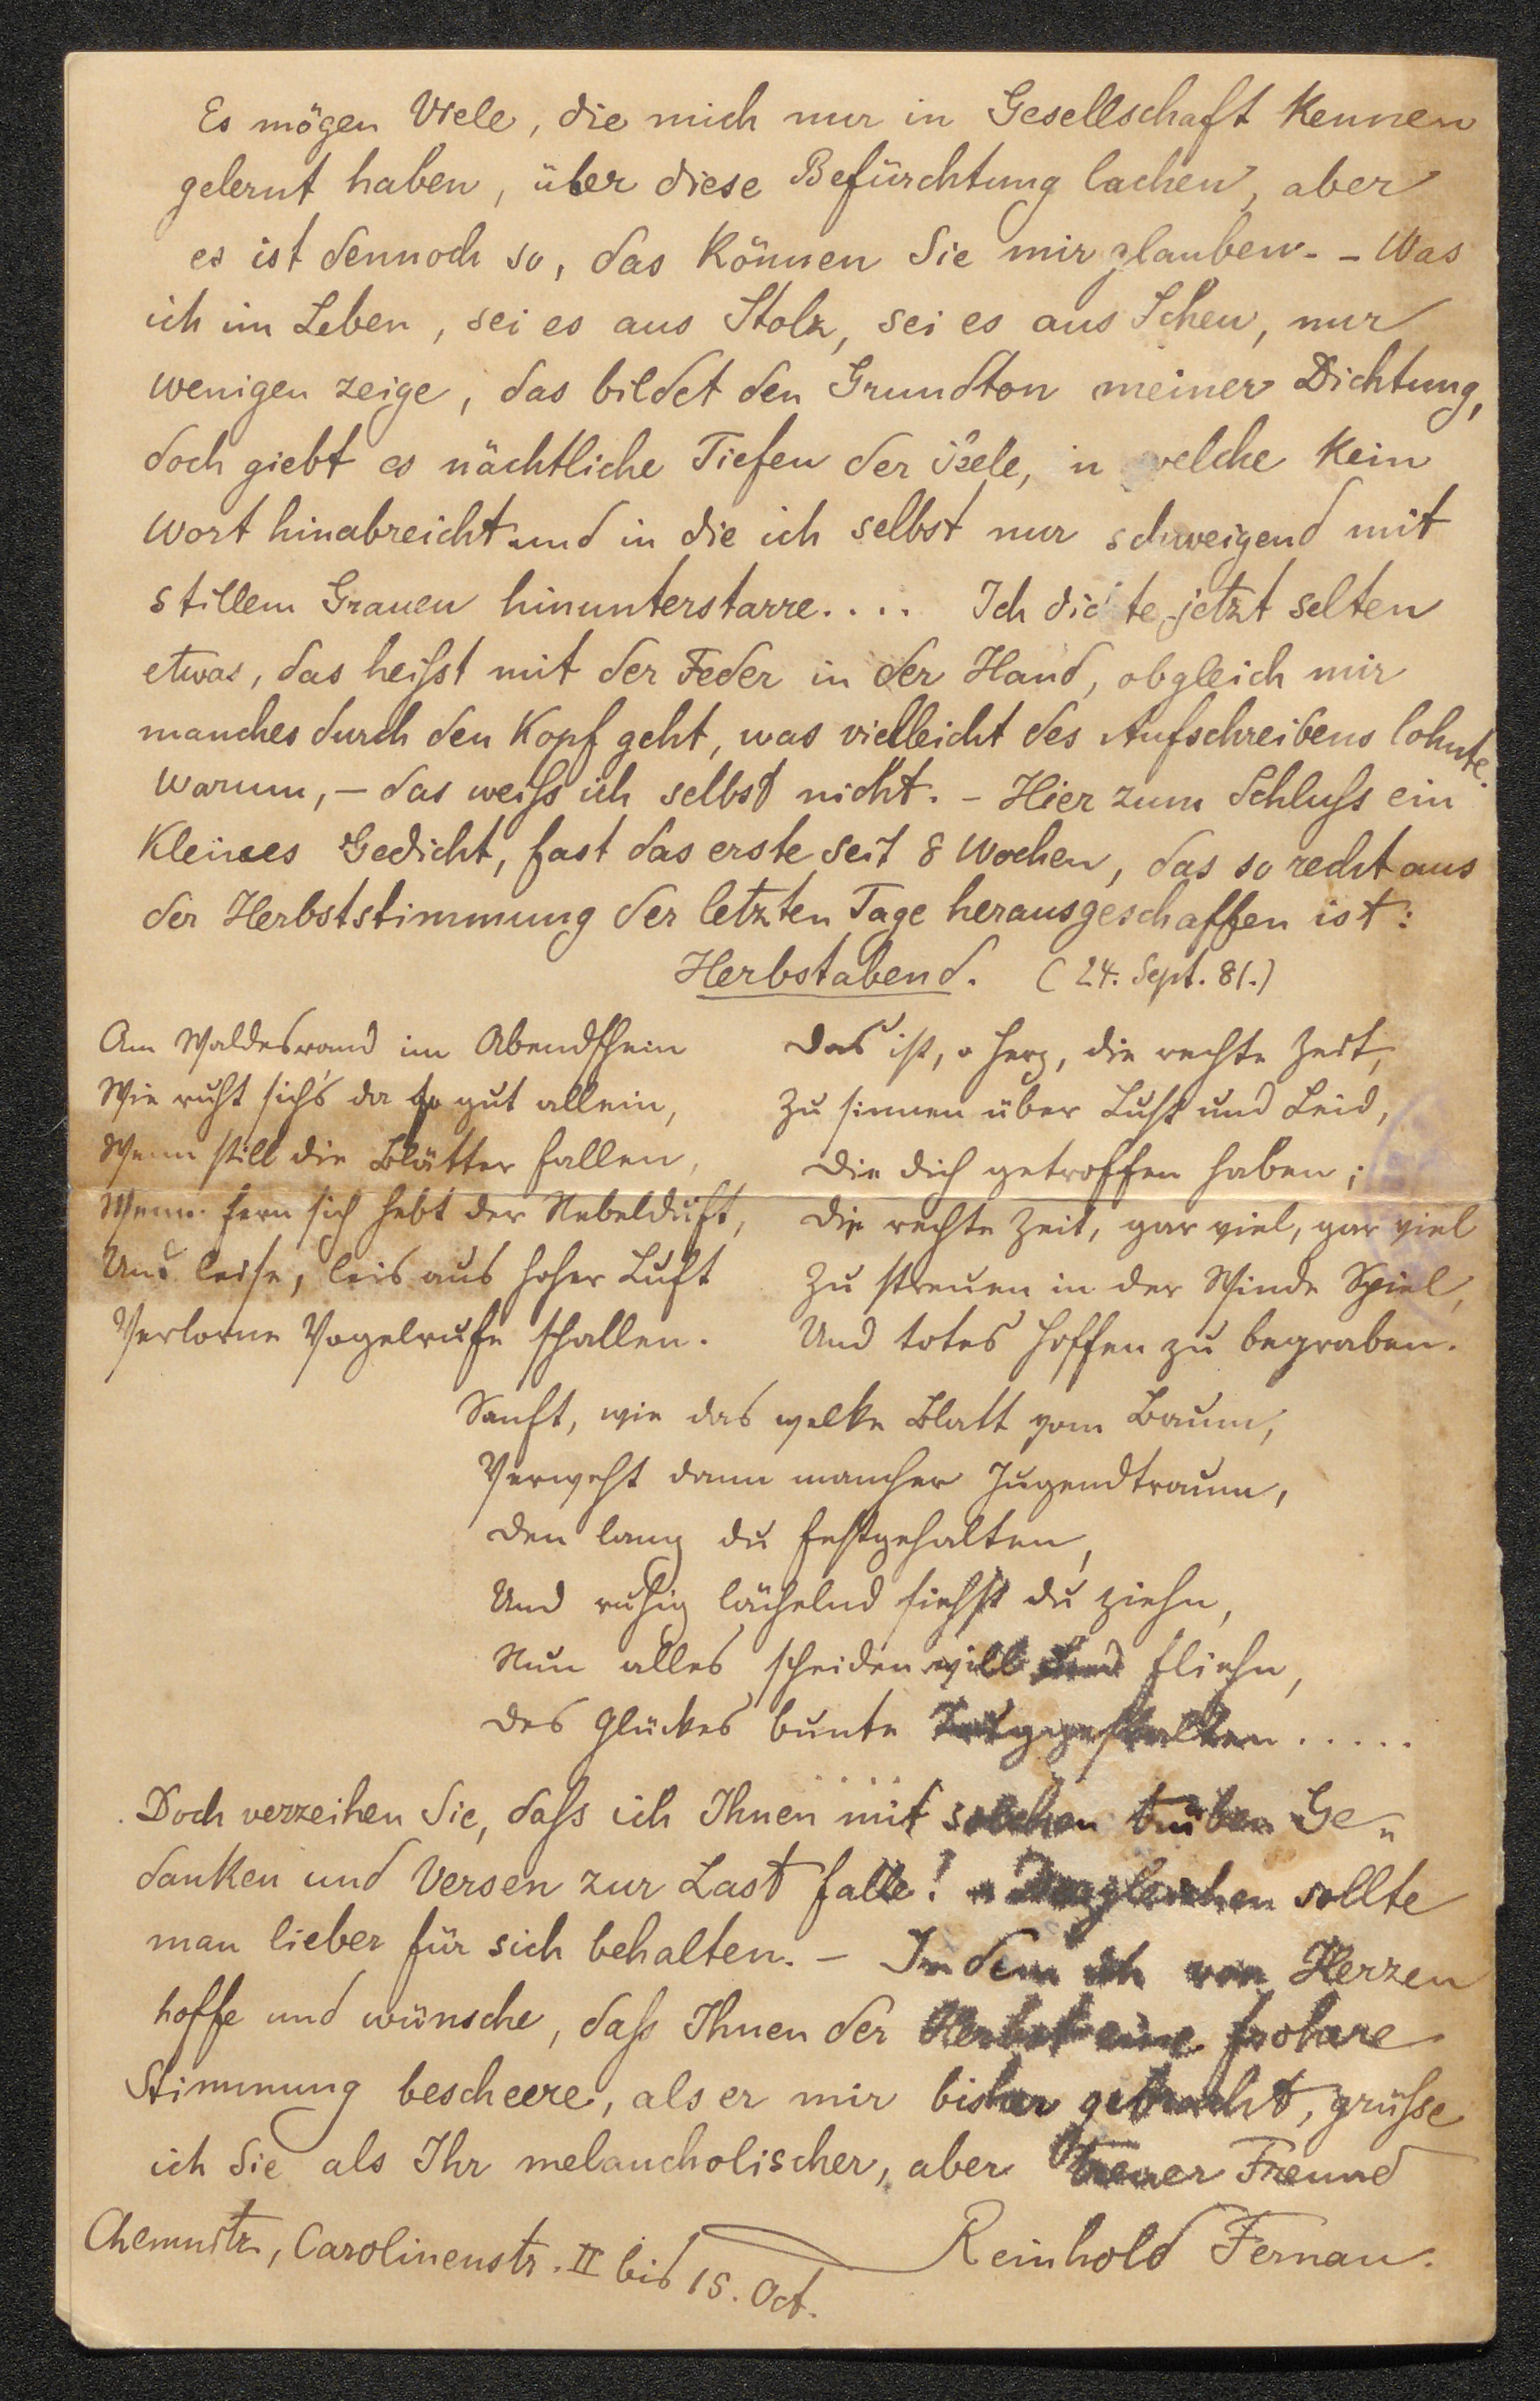 Es mögen Viele, die mich nur in Gesellschaft kennen
gelernt haben, über diese Befürchtung lachen, aber
es ist dennoch so, das können Sie mir glauben. – Was
ich im Leben, sei es aus Stolz, sei es aus Scheu, nur
wenigen zeige, das bildet den Grundton meiner Dichtung,
doch giebt es nächtliche Tiefen der Seele, in welche kein
Wort hinabreicht und in die ich selbst nur schweigend mit
stillem Grauen hinunterstarre.... Ich dichte jetzt selten
etwas, das heisst mit der Feder in der Hand, obgleich mir
manches durch den Kopf geht, was vielleicht des Aufschreibens lohnte.
Warum, – das weiss ich selbst nicht. – Hier zum Schluss ein
kleines Gedicht, fast das erste seit 8 Wochen, das so recht aus
der Herbststimmung der letzten Tage herausgeschaffen ist:
Herbstabend. (24. Sept. 81.)
Am Waldesrand im Abendschein
Wie ruht sich's da so gut allein,
Wenn still die Blätter fallen,
Wenn fern sich hebt der Nebelduft,
Und leise, leis aus hoher Luft
Verlorne Vogelrufe schallen.
Das ist, o Herz, die rechte Zeit,
Zu sinnen über Lust und Leid,
Die dich getroffen haben;
Die rechte Zeit, gar viel, gar viel
Zu streuen in der Winde Spiel,
Und totes Hoffen zu begraben.
Sanft, wie das welke Blatt vom Baum,
Verweht dann mancher Jugendtraum,
Den lang du festgehalten,
Und ruhig lächelnd siehst du ziehn,
Nun alles scheiden will und fliehn,
Des Glückes bunte Truggestalten.....
Doch verzeihen Sie, dass ich Ihnen mit solchen trüben Ge-
danken und Versen zur Last falle! – Dergleichen sollte
man lieber für sich behalten. – Indem ich von Herzen
hoffe und wünsche, dass Ihnen der Herbst eine frohere
Stimmung bescheere, als er mir bisher gebracht, grüsse
ich Sie als Ihr melancholischer, aber treuer Freund
Reinhold Fernau.
Chemnitz, Carolinenstr. II bis 15. Oct.